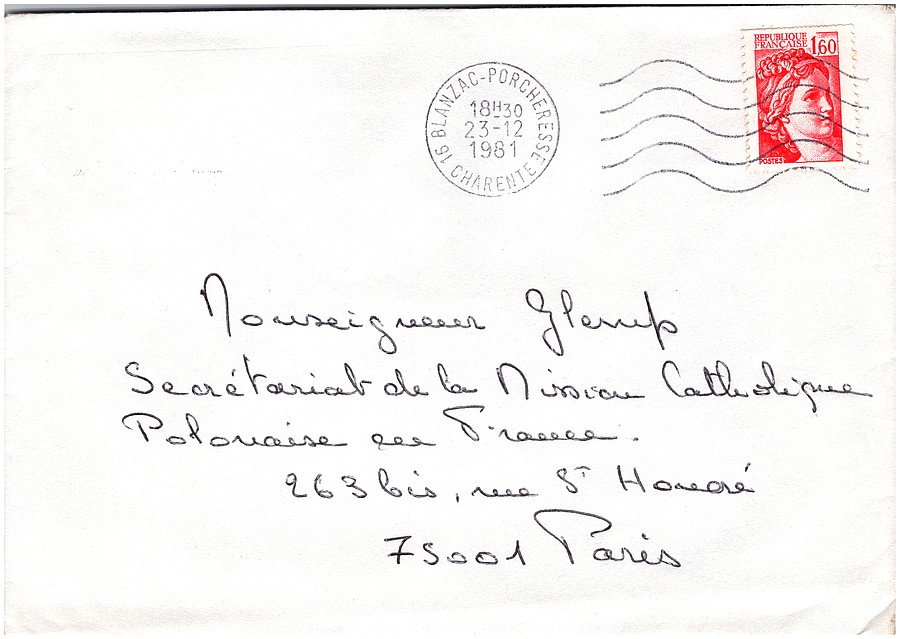 REPUBLIQUE
FRANÇAISE 1,60
POSTES
16 BLANZAC-PORCHERESSE
18H30
23-12
1981
CHARENTE
Monseigneur Glemp
Secrétariat de la Mission Catholique
Polonaise en France.
263 bis, rue St Honoré
75001 Paris